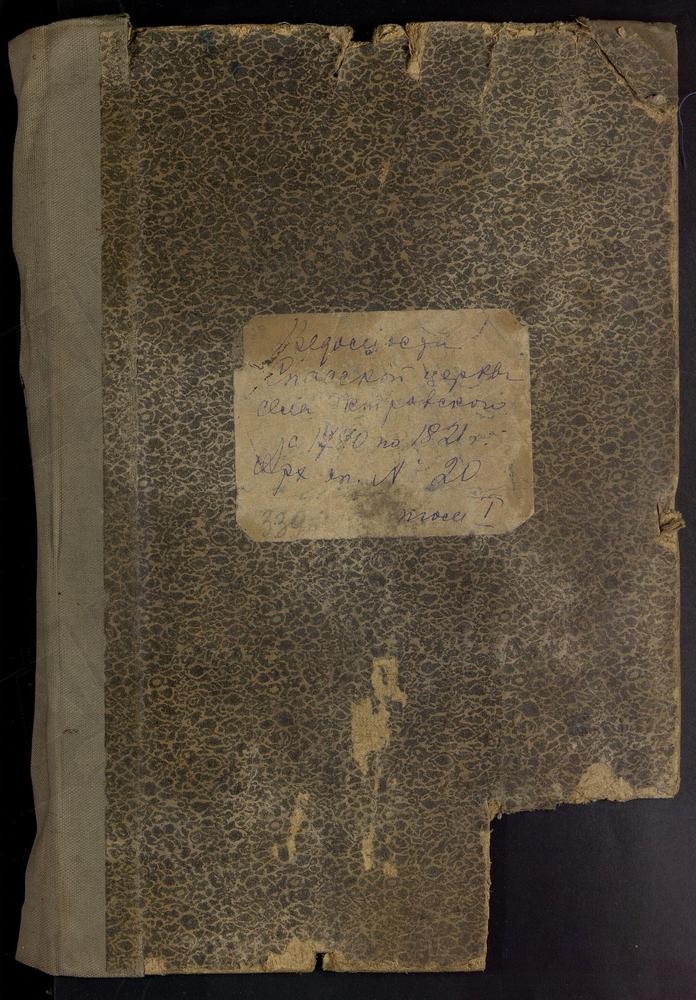 Ведомости
Спасской церкви
села Петровского
с 1780 по 1821 г.
арх оп. № 20
339
том I